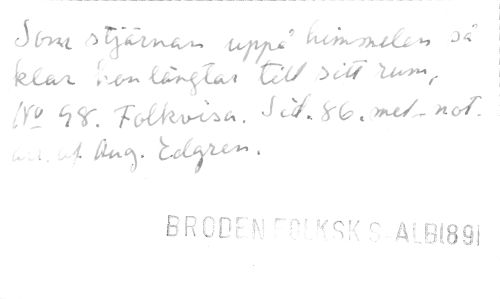 Som stjärnan uppå himmelen så
klar hon längtar till sitt rum,
No 98. Folkvisa. Sid. 86. med not.
arr. af Aug. Edgren.
BRODEN FOLKSK S-ALB(89)